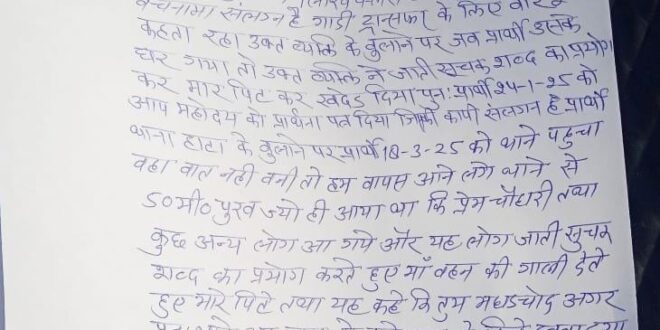 बेचनामा संलग्न है गाडी ट्रान्सफर के लिए
कहता रहा उक्त व्यक्ति के बुलाने पर जब प्रार्थी उसके
घर गया तो उक्त व्यक्ति ने जाती सूचक शब्द का प्रयोग
कर मार पिट कर खदेड दिया पुनः प्रार्थी 24-1-25 को
आप महोदय को प्रार्थना पत्र दिया जिसकी कापी संलग्न है प्रार्थी
थाना हाटा के बुलाने पर प्रार्थी 18-3-25 को थाने पहुचा
वहा बात नही बनी तो हम वापस आने लगे थाने से
50मी० पुरब ज्यो ही आया था कि प्रेम चौधरी तथा
कुछ अन्य लोग आ गये और यह लोग जाती सुचक
शब्द का प्रयोग करते हुए माँ बहन की गाली देते
हुए मारे पिटे तथा यह कहे कि तुम मधडचोद अगर